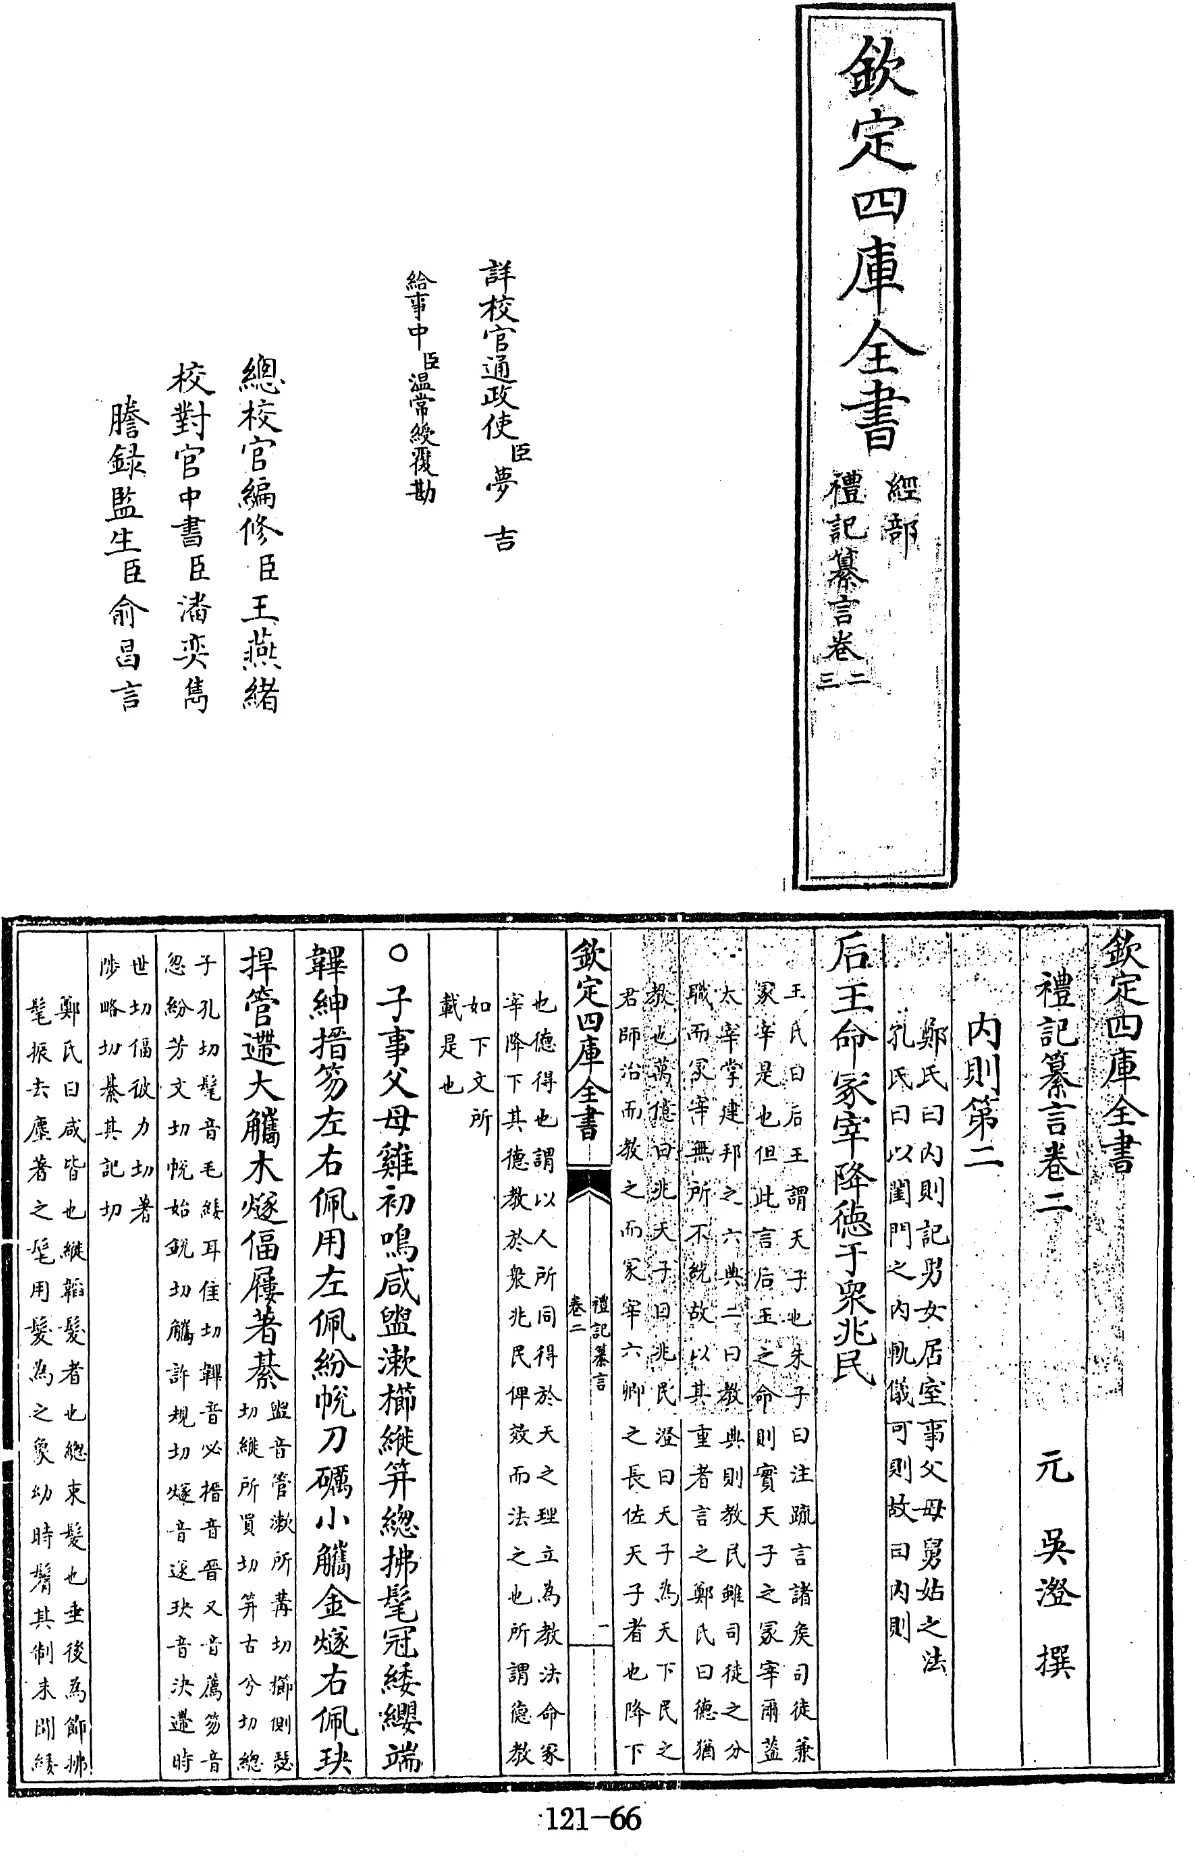 欽定四庫全書
經部
禮記纂言卷二
三
詳校官通政使臣夢吉
給事中臣溫常綬覆勘
總校官編修臣王燕緒
校對官中書臣潘奕雋
謄錄監生臣俞昌言
欽定四庫全書
禮記纂言卷二
元 吳澄 撰
內則第二
鄭氏曰內則記男女居室事父母舅姑之法
孔氏曰以閨門之內軌儀可則故曰內則
后王命冢宰降德于衆兆民
王氏曰后王謂天子也朱子曰注疏言諸侯司徒兼
冢宰是也但此言后王之命則實天子之冢宰爾蓋
太宰掌建邦之六典二曰教典則教民雖司徒之分
職而冢宰無所不統故以其重者言之鄭氏曰德猶
教也萬億曰兆天子曰兆民澄曰天子為天下民之
君師治而教之而冢宰六卿之長佐天子者也降下
欽定四庫全書
禮記纂言
卷二
一
也德得也謂以人所同得於天之理立為教法命冢
宰降下其德教於衆兆民俾效而法之也所謂德教
如下文所
載是也
○子事父母雞初鳴咸盥漱櫛縰笄總拂髦冠緌纓端
韠紳搢笏左右佩用左佩紛帨刀礪小觿金燧右佩玦
捍管遰大觿木燧偪屨著綦
盥音管漱所冓切櫛側瑟
切縰所買切笄古兮切總
子孔切髦音毛緌耳隹切韠音必搢音晉又音薦笏音
忽紛芳文切帨始銳切觿許規切燧音遂玦音決遰時
世切偪彼力切著
陟略切綦其記切
鄭氏曰咸皆也縰韜髮者也總束髮也垂後為飾拂
髦振去塵著之髦用髮為之象幼時鬌其制未聞緌
121-66